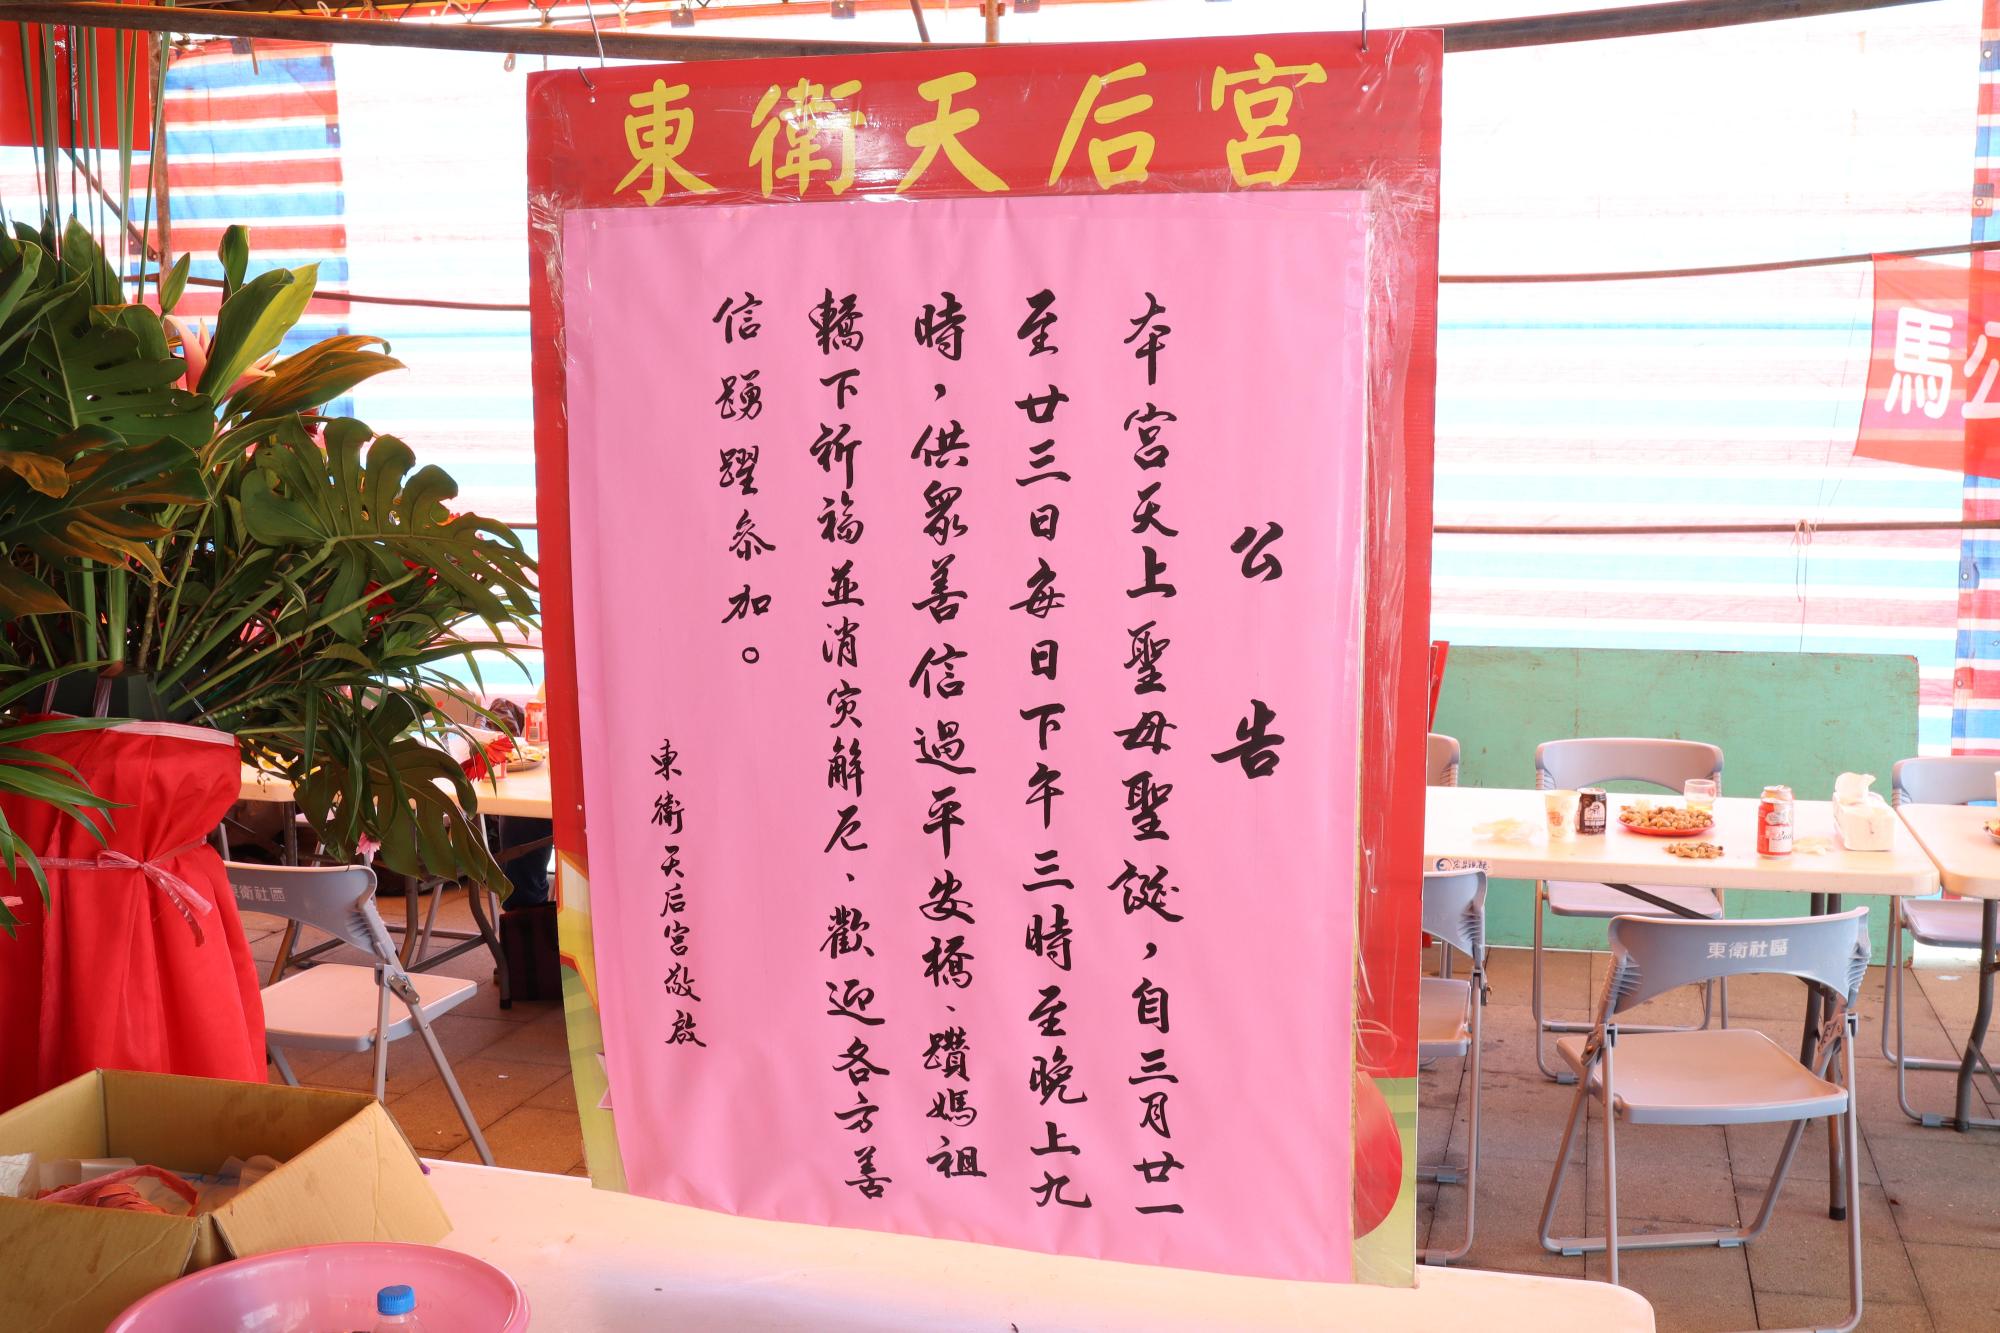 東衛天后宮
公告
本宮天上聖母聖誕，自三月廿一
至廿三日每日下午三時至晚上九
時，供眾善信過平安橋、躦媽祖
轎下祈福並消災解厄、歡迎各方善
信踴躍參加。
東衛天后宮敬啟
馬公
東衛社區
東衛社區